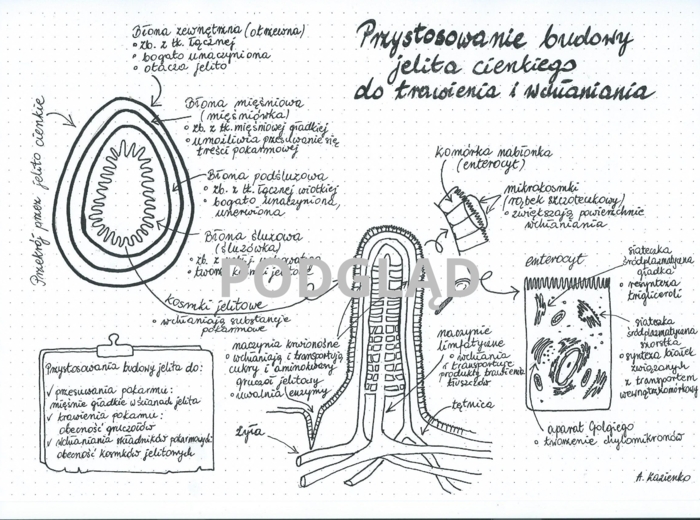 Przystosowanie budowy
jelita cienkiego
do trawienia i wchłaniania
Błona zewnętrzna (otrzewna)
• zb. z tk. łącznej
• bogato unaczyniona
• otacza jelito
Przekrój przez jelito cienkie
Błona mięśniowa
(mięśniówka)
• zb. z tk. mięśniowej gładkiej
• umożliwia przesuwanie się
treści pokarmowej
Błona podśluzowa
• zb. z tk. łącznej wiotkiej
• bogato unaczyniona,
unerwiona
Błona śluzowa
(śluzówka)
• zb. z
• tworzy kosmki jelitowe
kosmki jelitowe
• wchłaniają substancje
pokarmowe
PODGLĄD
komórka nabłonka
(enterocyt)
mikrokosmki
(rąbek szczoteczkowy)
• zwiększają powierzchnię
wchłaniania
enterocyt
siateczka
śródplazmatyczna
gładka
• resynteza
trigliceroli
siateczka
śródplazmatyczna
szorstka
• synteza białek
związanych
z transportem
wewnątrzkomórkowym
aparat Golgiego
• tworzenie chylomikronów
naczynia krwionośne
• wchłaniają i transportują
cukry i aminokwasy
gruczoł jelitowy
• uwalnia enzymy
naczynie
limfatyczne
• wchłania
i transportuje
produkty trawienia
tłuszczów
tętnica
żyła
Przystosowania budowy jelita do:
✓ przesuwania pokarmu:
mięśnie gładkie w ścianach jelita
✓ trawienia pokarmu:
obecność gruczołów
✓ wchłaniania składników pokarmowych:
obecność kosmków jelitowych
A. Kazienko